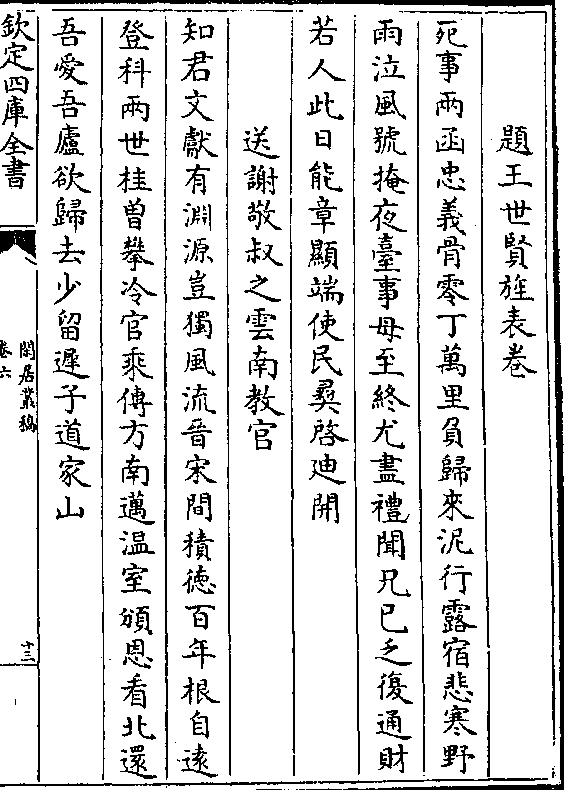 題王世賢旌表卷
死事兩函忠義骨零丁萬里負歸來泥行露宿悲寒野
雨泣風號掩夜臺事母至終尤盡禮聞兄已乏復通財
若人此日能章顯端使民彛啓迪開
送謝敬叔之雲南教官
知君文獻有淵源豈獨風流晉宋間積徳百年根自逺
登科兩世桂曽攀冷官乘傳方南邁温室頒恩看北還
吾愛吾廬欲歸去少留遲子道家山
欽定四庫全書
閒居叢稿
卷六
十三